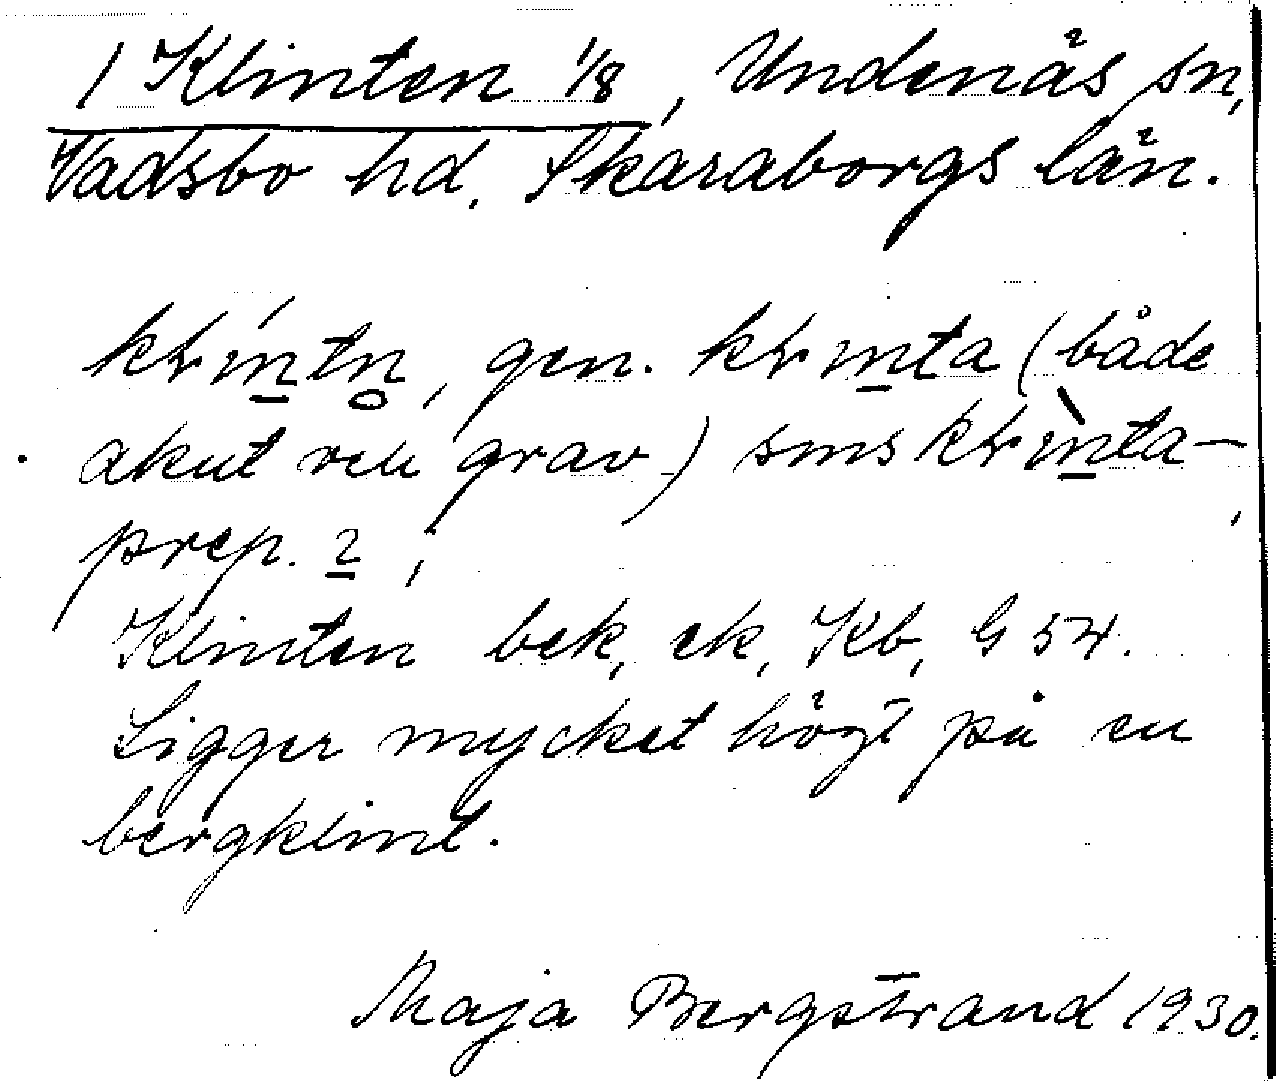 1 Klinten 1/8, Undenäs sn,
Vadsbo hd. Skaraborgs län.
gen. (både
akut och grav) sms
prep. 2;
Klinten bek, ek, Kb, G 54.
Ligger mycket högt på en
bergklint.
Maja Bergstrand 1930.